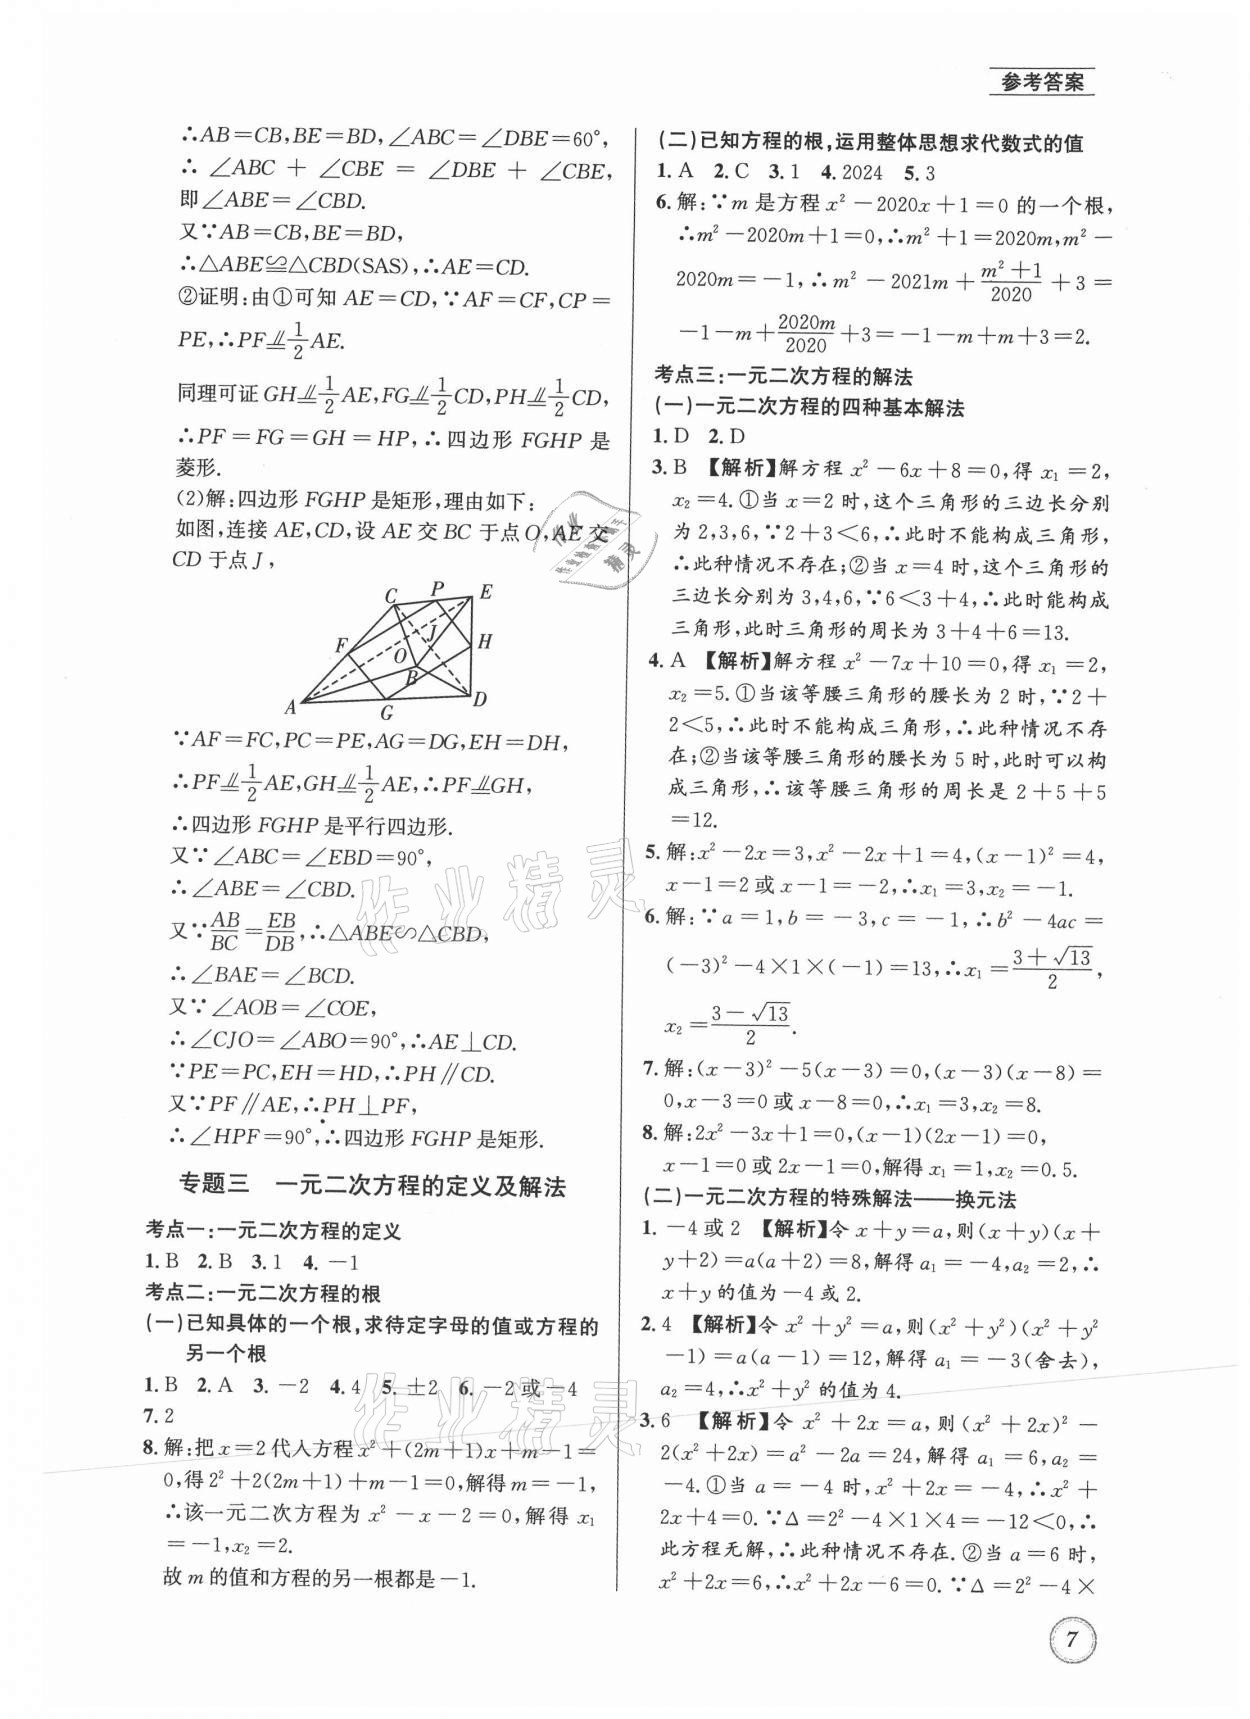 参考答案
∴AB=CB,BE=BD,∠ABC=∠DBE=60°,
∴∠ABC+∠CBE=∠DBE+∠CBE,
即∠ABE=∠CBD.
又∵AB=CB,BE=BD,
∴△ABE≌△CBD(SAS),∴AE=CD.
②证明:由①可知AE=CD,∵AF=CF,CP=
PE,∴PF⫽1/2AE.
同理可证GH⫽1/2AE,FG⫽1/2CD,PH⫽1/2CD,
∴PF=FG=GH=HP,∴四边形FGHP是
菱形.
(2)解:四边形FGHP是矩形,理由如下:
如图,连接AE,CD,设AE交BC于点O,AE交
CD于点J,
C P E
F J H
O
B
A G D
∵AF=FC,PC=PE,AG=DG,EH=DH,
∴PF⫽1/2AE,GH⫽1/2AE,∴PF⫽GH,
∴四边形FGHP是平行四边形.
又∵∠ABC=∠EBD=90°,
∴∠ABE=∠CBD.
又∵AB/BC=EB/DB,∴△ABE∽△CBD,
∴∠BAE=∠BCD.
又∵∠AOB=∠COE,
∴∠CJO=∠ABO=90°,∴AE⊥CD.
∵PE=PC,EH=HD,∴PH∥CD.
又∵PF∥AE,∴PH⊥PF,
∴∠HPF=90°,∴四边形FGHP是矩形.
专题三 一元二次方程的定义及解法
考点一:一元二次方程的定义
1.B 2.B 3.1 4.-1
考点二:一元二次方程的根
(一)已知具体的一个根,求待定字母的值或方程的
另一个根
1.B 2.A 3.-2 4.4 5.±2 6.-2或-4
7.2
8.解:把x=2代入方程x²+(2m+1)x+m-1=
0,得2²+2(2m+1)+m-1=0,解得m=-1,
∴该一元二次方程为x²-x-2=0,解得x₁
=-1,x₂=2.
故m的值和方程的另一根都是-1.
(二)已知方程的根,运用整体思想求代数式的值
1.A 2.C 3.1 4.2024 5.3
6.解:∵m是方程x²-2020x+1=0的一个根,
∴m²-2020m+1=0,∴m²+1=2020m,m²-
2020m=-1,∴m²-2021m+(m²+1)/2020+3=
-1-m+2020m/2020+3=-1-m+m+3=2.
考点三:一元二次方程的解法
(一)一元二次方程的四种基本解法
1.D 2.D
3.B 【解析】解方程x²-6x+8=0,得x₁=2,
x₂=4.①当x=2时,这个三角形的三边长分别
为2,3,6,∵2+3<6,∴此时不能构成三角形,
∴此种情况不存在;②当x=4时,这个三角形的
三边长分别为3,4,6,∵6<3+4,∴此时能构成
三角形,此时三角形的周长为3+4+6=13.
4.A 【解析】解方程x²-7x+10=0,得x₁=2,
x₂=5.①当该等腰三角形的腰长为2时,∵2+
2<5,∴此时不能构成三角形,∴此种情况不存
在;②当该等腰三角形的腰长为5时,此时可以构
成三角形,∴该等腰三角形的周长是2+5+5
=12.
5.解:x²-2x=3,x²-2x+1=4,(x-1)²=4,
x-1=2或x-1=-2,∴x₁=3,x₂=-1.
6.解:∵a=1,b=-3,c=-1,∴b²-4ac=
(-3)²-4×1×(-1)=13,∴x₁=(3+√13)/2,
x₂=(3-√13)/2.
7.解:(x-3)²-5(x-3)=0,(x-3)(x-8)=
0,x-3=0或x-8=0,∴x₁=3,x₂=8.
8.解:2x²-3x+1=0,(x-1)(2x-1)=0,
x-1=0或2x-1=0,解得x₁=1,x₂=0.5.
(二)一元二次方程的特殊解法——换元法
1.-4或2 【解析】令x+y=a,则(x+y)(x+
y+2)=a(a+2)=8,解得a₁=-4,a₂=2,∴
x+y的值为-4或2.
2.4 【解析】令x²+y²=a,则(x²+y²)(x²+y²
-1)=a(a-1)=12,解得a₁=-3(舍去),
a₂=4,∴x²+y²的值为4.
3.6 【解析】令x²+2x=a,则(x²+2x)²-
2(x²+2x)=a²-2a=24,解得a₁=6,a₂=
-4.①当a=-4时,x²+2x=-4,∴x²+
2x+4=0.∵Δ=2²-4×1×4=-12<0,∴
此方程无解,∴此种情况不存在.②当a=6时,
x²+2x=6,∴x²+2x-6=0.∵Δ=2²-4×
7
作业精灵
作业精灵